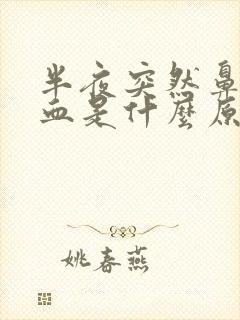 半夜突然鼻
血是什麼原
姚春燕